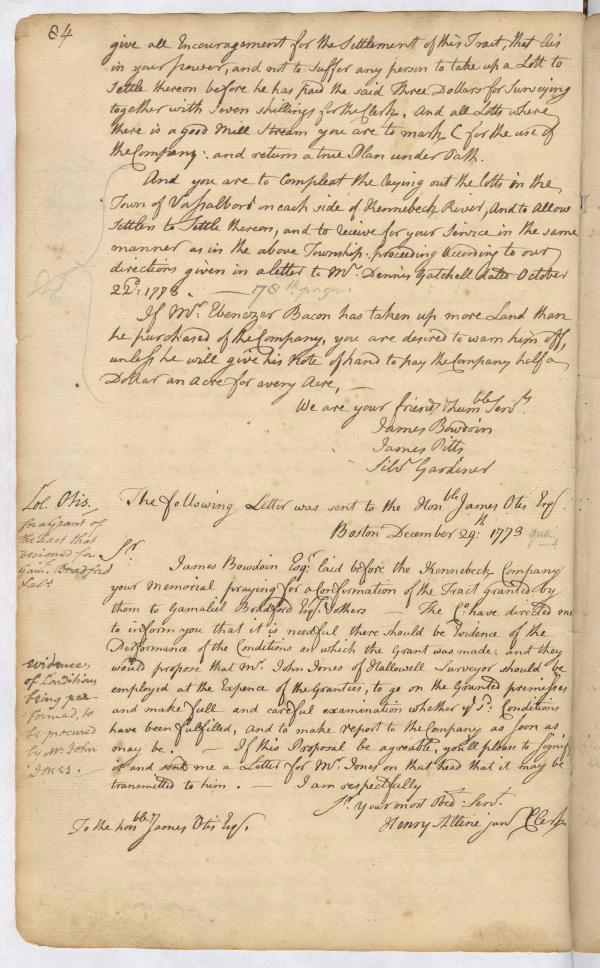 84
give all Encouragement for the Settlement of this Tract, that lies
in your power, and not to suffer any person to take up a Lott to
Settle thereon before he has paid the said Three Dollars for Surveying
together with Seven shillings for the Clerk. And all Lotts where
there is a good Mill Stream you are to mark C for the use of
the Company: and return a true Plan under Oath.
And you are to Compleat the laying out the Lotts in the
Town of Vassalboro on each side of Kennebeck River, And to Allow
Settlers to Settle thereon, and to receive for your Service in the same
manner as in the above Township. proceeding According to our
directions given in a letter to Mr. Dennis Gatchell dated October
22d: 1773. — 78th page.
If Mr. Ebenezer Bacon has taken up more Land than
he purchased of the Company, you are desired to warn him off,
unless he will give his Note of hand to pay the Company half a
Dollar an Acre for every Acre, —
We are your friends & humble Servts.
James Bowdoin
James Pitts
Silvr. Gardiner
Col. Otis.
for a grant of
the Tract that
designed for
Gaml. Bradford
The following Letter was sent to the Honble James Otis Esqr.
Boston December 29th: 1773
Sr.
James Bowdoin Esqr. laid before the Kennebeck Company
your Memorial praying for a Confirmation of the Tract granted by
them to Gamaliel Bradford Esqr. & others — The Co. have directed me
to inform you that it is needful there should be Evidence of the
Performance of the Conditions on which the Grant was made: and they
would propose that Mr. John Jones of Hallowell Surveyor should be
employed at the Expence of the Grantees, to go on the Granted premisses
and make full and careful examination whether ye sd. Conditions
have been fulfilled, and to make report to the Company as soon as
may be. — If this Proposal be agreable, you'll please to signify
it and send me a Letter for Mr. Jones on that head that it may be
transmitted to him. — I am respectfully
Sr. Your most Obed: Servt.
Henry Alline junr Clerk
evidence
of Conditions
being per-
formed, to
be procured
by Mr. John
Jones. —
To the honble James Otis Esqr.